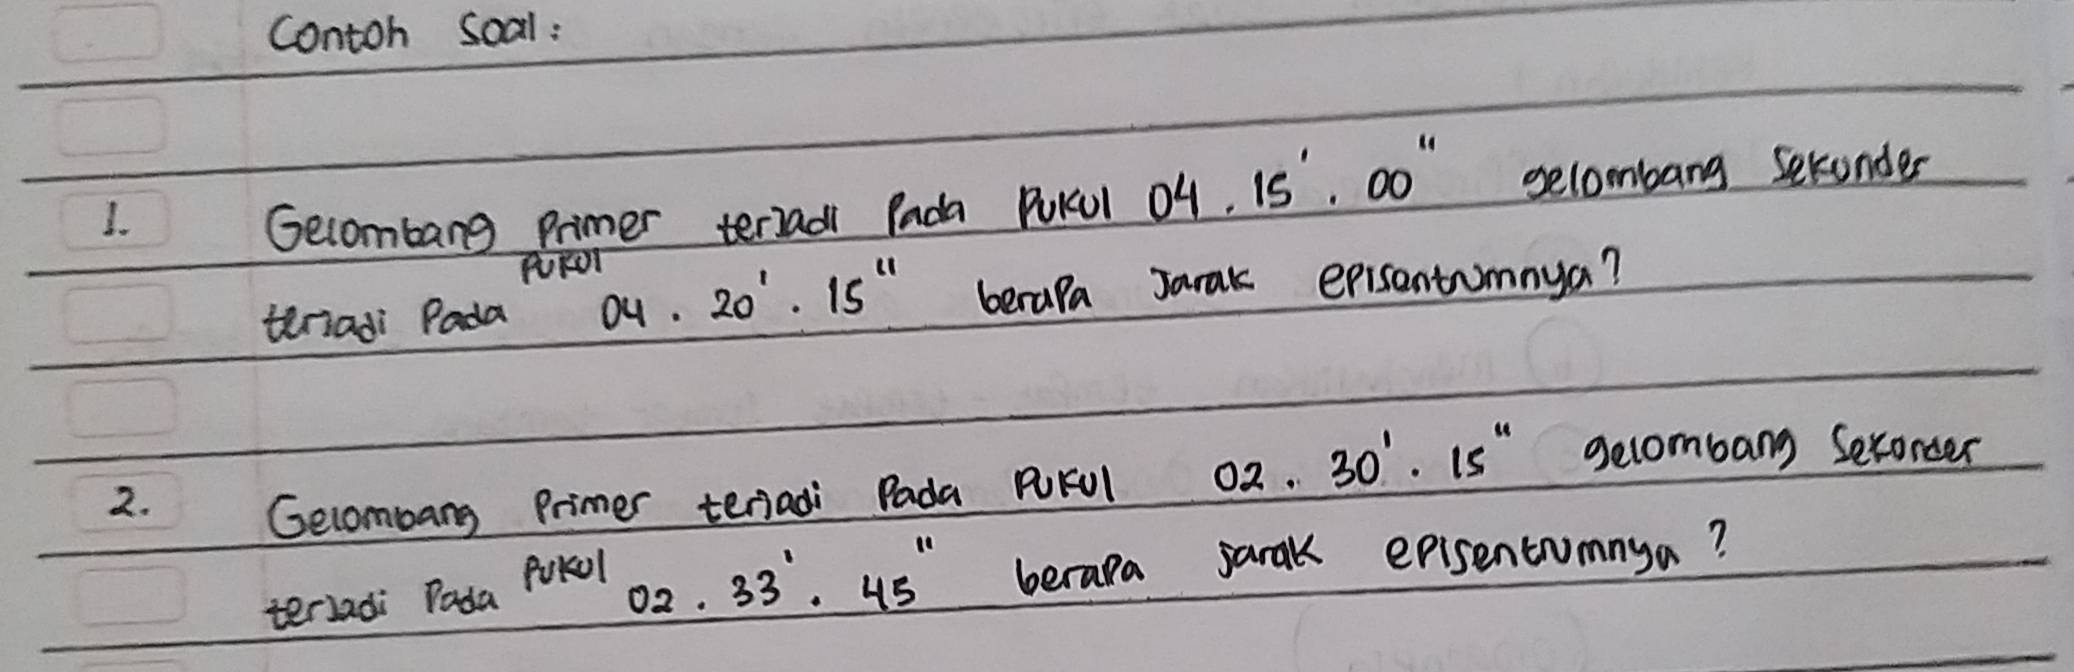 Contoh Soal:
1. Gelombang Primer terjadi Pada Pukul 04. 15'. 00" gelombang Sekunder
terjadi Pada Pukul 04. 20'. 15" berapa Jarak episantrumnya?
2. Gelombang Primer terjadi Pada Pukul 02. 30'. 15" gelombang Sekonder
terjadi Pada Pukul 02. 33'. 45" berapa jarak episentrumnya?